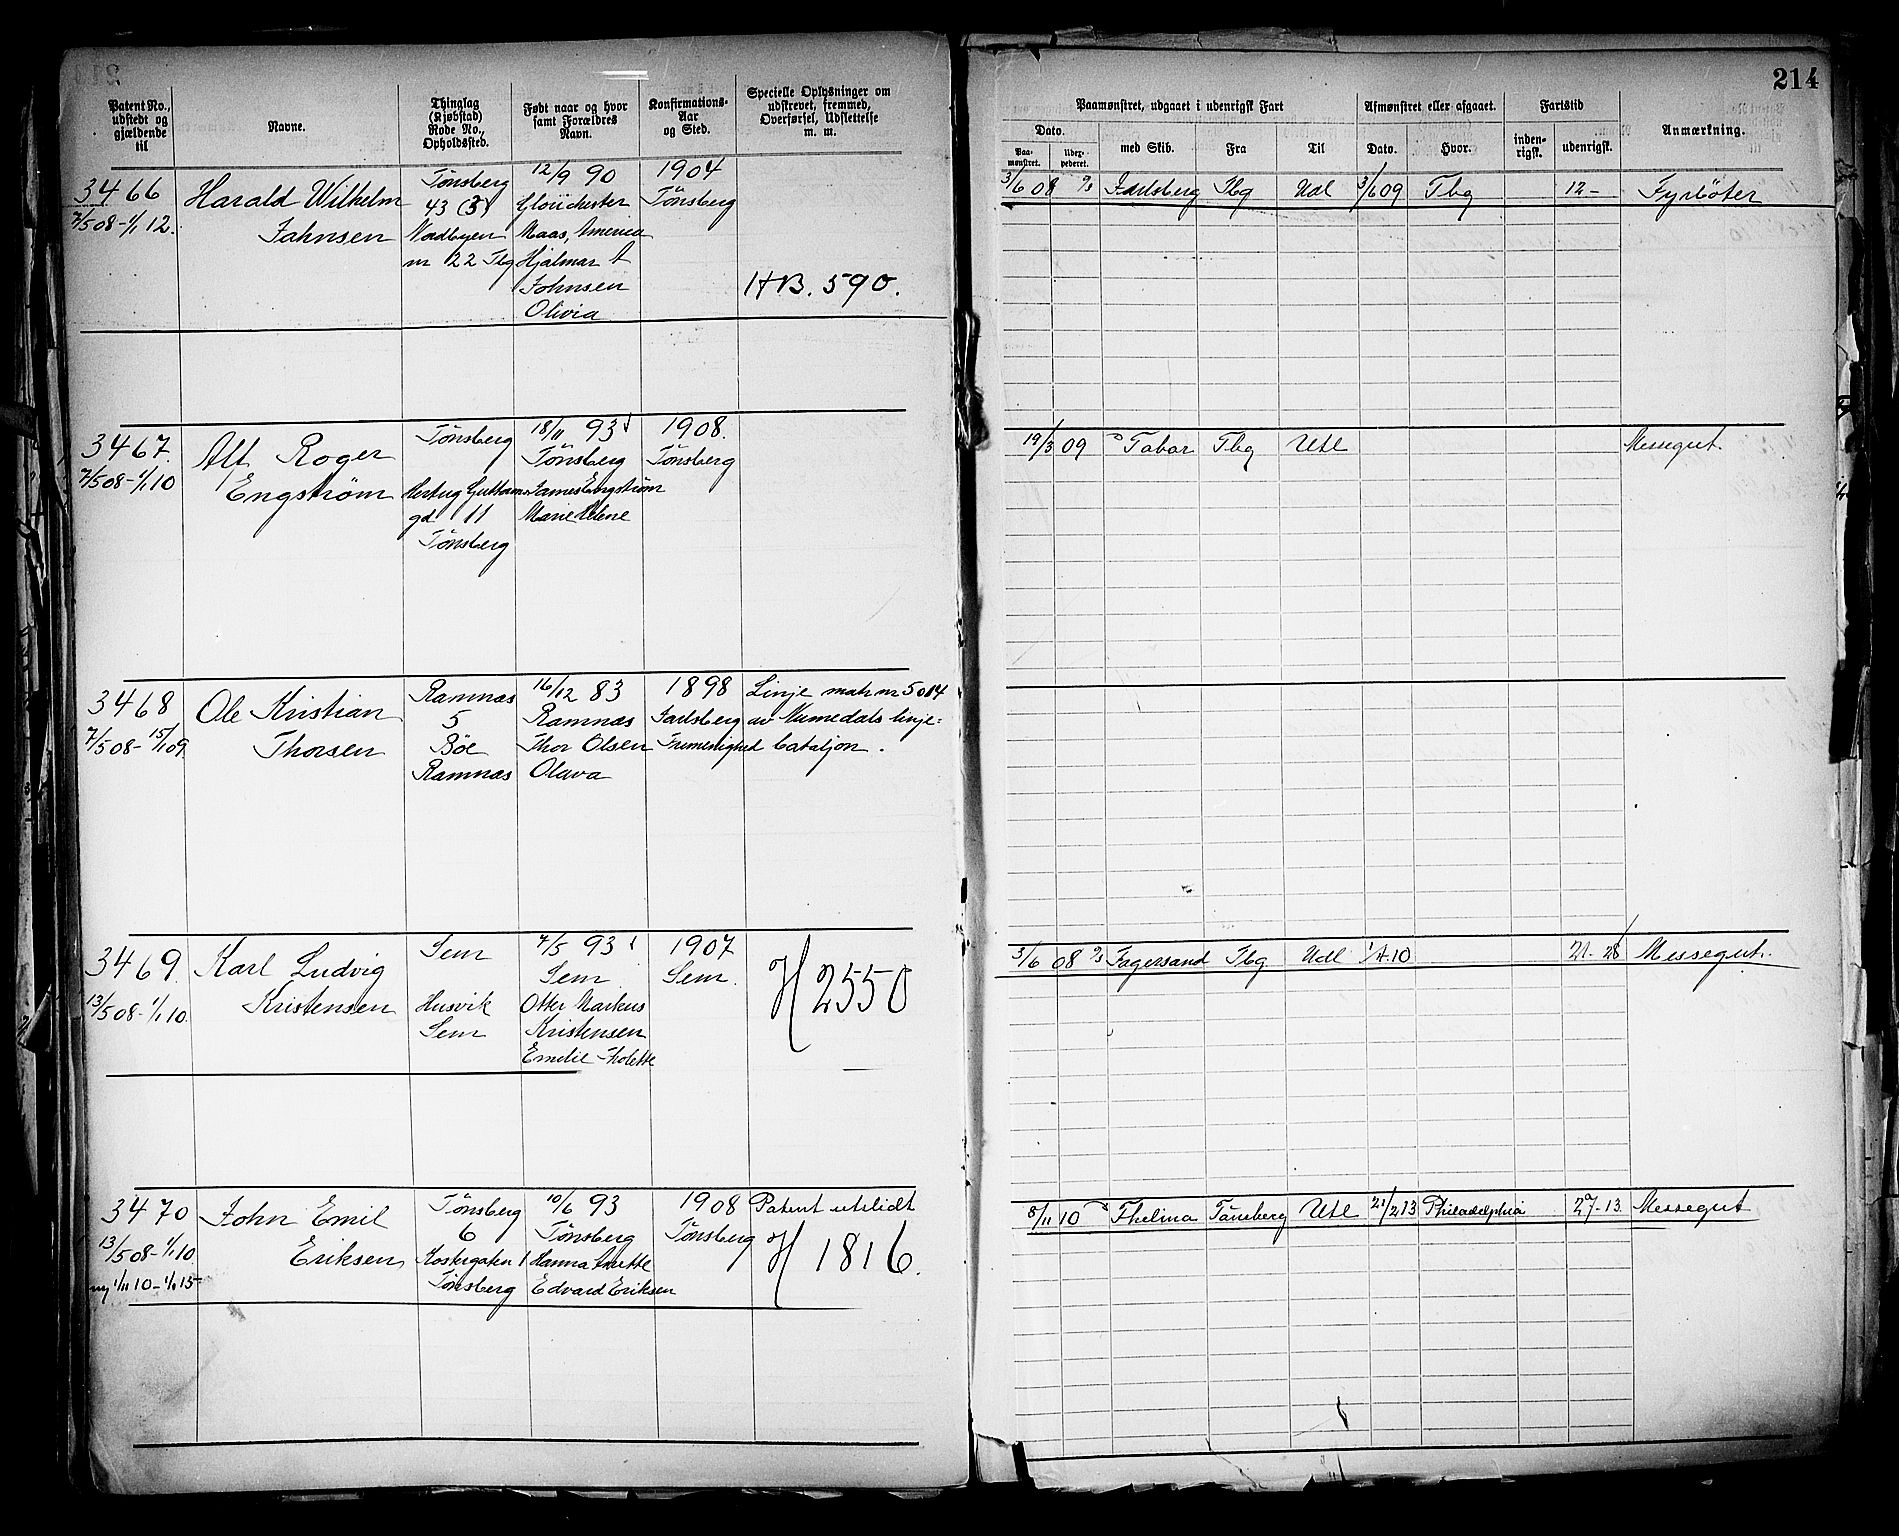 214
Patent No., udstedt og gjældende til
Navne.
Thinglag (Kjøbstad) Rode No., Opholdssted.
Født naar og hvor samt Forældres Navn.
Konfirmations-Aar og Sted.
Specielle Oplysninger om udskrevet, fremmed, Overførsel, Udslettelse m. m.
Paamønstret, udgaaet i udenrigsk Fart
Afmønstret eller afgaaet.
Fartstid
Anmærkning.
Dato.
Paa-mønstret.
med Skib.
Fra
Til
Dato.
Hvor.
inden-rigsk.
udenrigsk.
3466
7/5 08 - 1/1 12.
Harald Wilhelm
Jahnsen
Tønsberg
43 (3)
Nordbyen
nr 22 Tbg
12/9 90
Glouichester
Maas, America
Hjalmar A
Johnsen
Olivia
1904
Tønsberg
HB. 590.
3/6 08 Jarlsberg Tbg Udl 3/6 09 Tbg 12- Fyrbøter
3467.
7/5 08 - 1/1 10
Alf Roger
Engstrøm
Tønsberg
Hertug Guthorms
gd 11
Tønsberg
18/11 93
Tønsberg
James Engstrøm
Marie Helene
1908.
Tønsberg
19/3 09 Tabor Tbg Utl Messegut.
3468
7/5 08 - 15/1 09.
Ole Kristian
Thorsen
Ramnæs
5
Bøe
Ramnæs
16/12 83
Ramnæs
Thor Olsen
Olava
1898
Jarlsberg
Frimenighed
Linje matr nr 5014
av Numedals linje=
bataljon.
3469.
13/5 08 - 1/1 10.
Karl Ludvig
Kristensen
Sem
Husvik
Sem
7/5 93
Sem
Otto Markus
Kristensen
Emelie
1907
Sem.
H 2550
3/6 08 Fagersand Tbg. Udl 1/4 10 21-28 Messegut.
3470
13/5 08 - 1/1 10
ny 1/11 10 - 1/1 15
John Emil
Eriksen
Tønsberg
6
Tønsberg
10/6 93
Tønsberg
Hanna
Edvard Eriksen
1908
Tønsberg
Patent utslidt
H 1816.
8/11 10 Thelma Tønsberg Utl 21/2 13 Philadelphia 27-13. Messegut